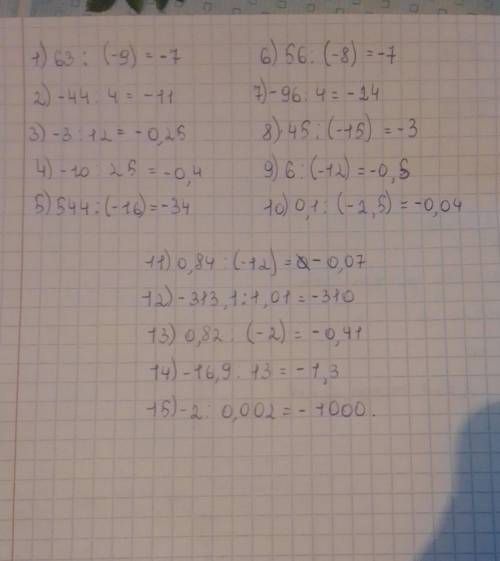 1) 63 : (-9) = -7
2) -44 : 4 = -11
3) -3 : 12 = -0,25
4) -10 : 25 = -0,4
5) 544 : (-16) = -34
6) 56 : (-8) = -7
7) -96 : 4 = -24
8) 45 : (-15) = -3
9) 6 : (-12) = -0,5
10) 0,1 : (-2,5) = -0,04
11) 0,84 : (-12) = -0,07
12) -313,1 : 1,01 = -310
13) 0,82 : (-2) = -0,41
14) -16,9 : 13 = -1,3
15) -2 : 0,002 = -1000.